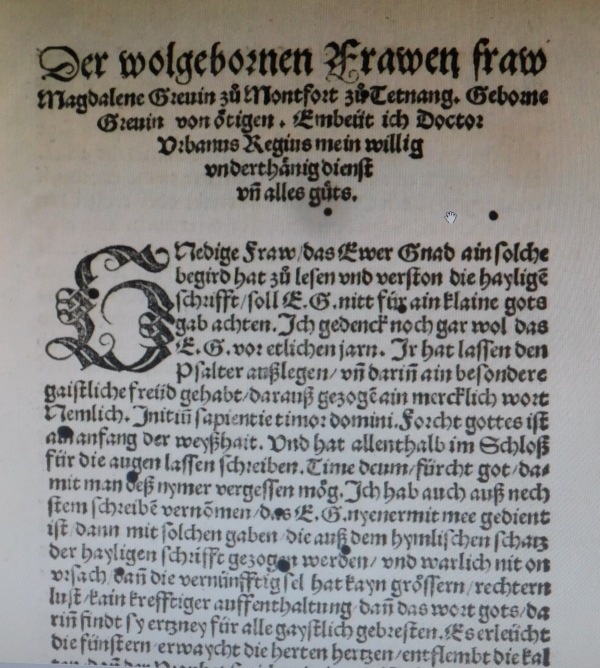 Der wolgebornen Frawen fraw
Magdalene Grevin zů Montfort zů Tetnang. Geborne
Grevin von ötigen. Embeüt ich Doctor
Vrbanus Regius mein willig
vnderthänig dienst
vñ alles gůts.
GNedige Fraw/das Ewer Gnad ain solche
begird hat zů lesen vnd verston die haylige͂
schrifft/soll E.G.nitt für ain klaine gots
gab achten. Ich gedenck noch gar wol das
E.G.vor etlichen jarn. Ir hat lassen den
Psalter außlegen/vñ darin͂ ain besondere
gaistliche freüd gehabt/darauß gezoge͂ ain mercklich wort
Nemlich. Initiu͂ sapientie timor domini. Forcht gottes ist
am anfang der weyßhait. Vnd hat allenthalb im Schloß
für die augen lassen schreiben. Time deum/fürcht got/da-
mit man deß nymer vergessen mög. Ich hab auch auß nech
stem schreibe͂ vernom͂en/das E.G.nyenermit mee gedient
ist/dann mit solchen gaben/die auß dem hymlischen schatz
der hayligen schrifft gezogen werden/vnd warlich nit on
vrsach/dan͂ die vernünfftig sel hat kayn grössern/rechtern
lust/kain krefftiger auffenthaltung/dan͂ das wort gots/da
rin͂ findt sy ertzney für alle gaystlich gebresten. Es erleücht
die fünstern/erwaycht die herten hertzen/entflembt die kal